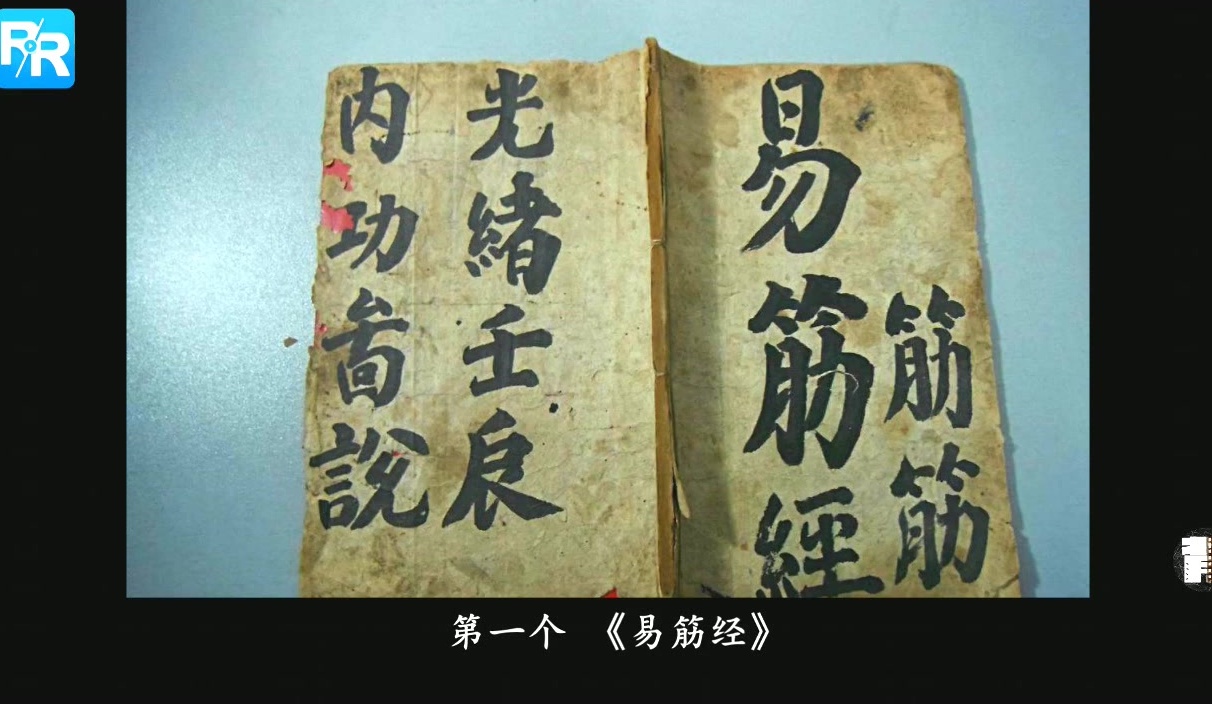 RR
筋筋
易筋經
光緒壬辰
内功啚說
第一个 《易筋经》